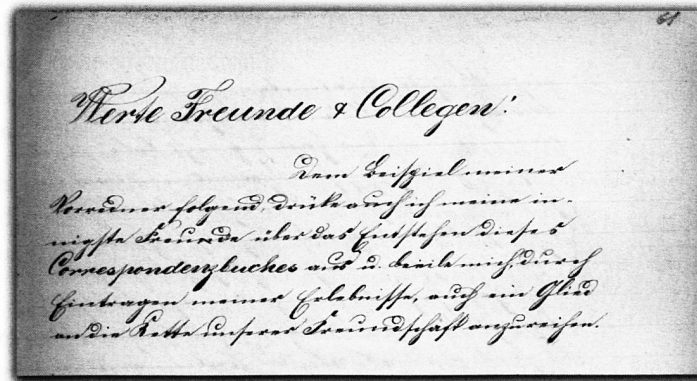 61
Werte Freunde & Collegen!
Dem Beispiel meiner
Vorredner folgend, drüke auch ich meine in-
nigste Freunde über das Entstehen dieses
Correspondenzbuches aus u. beeile mich, durch
Eintragen meiner Erlebnisse, auch ein Glied
an die Kette unserer Freundschaft anzureihen.